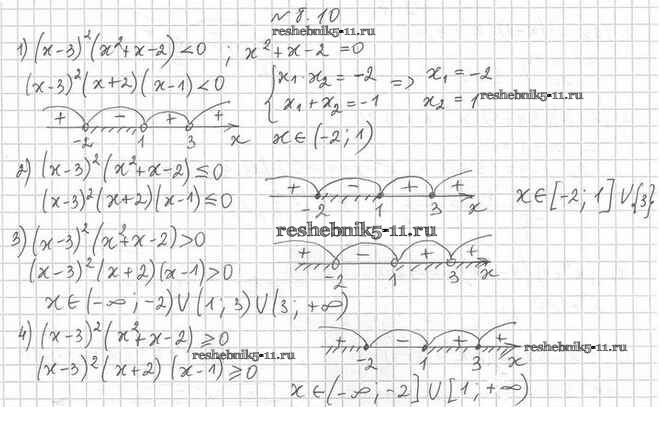 № 8.10
reshebnik5-11.ru
1) (x-3)²(x²+x-2)<0 ; x²+x-2=0
(x-3)²(x+2)(x-1)<0
{x₁·x₂=-2
x₁+x₂=-1 => x₁=-2
x₂=1 reshebnik5-11.ru
+ - + +
-2 1 3 x
x∈(-2;1)
2) (x-3)²(x²+x-2)≤0
(x-3)²(x+2)(x-1)≤0
+ - + +
-2 1 3 x
x∈[-2;1]∪{3}
reshebnik5-11.ru
3) (x-3)²(x²+x-2)>0
(x-3)²(x+2)(x-1)>0
+ - + +
-2 1 3 x
x∈(-∞;-2)∪(1;3)∪(3;+∞)
4) (x-3)²(x²+x-2)≥0
reshebnik5-11.ru
(x-3)²(x+2)(x-1)≥0
+ - + +
-2 1 3 x
reshebnik5-11.ru
x∈(-∞;-2]∪[1;+∞)